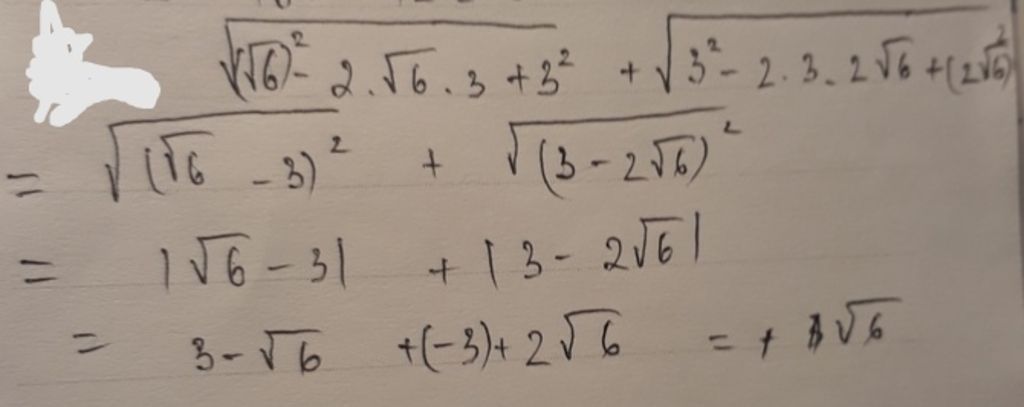 √((√6)² - 2.√6.3 + 3²) + √(3² - 2.3.2√6 + (2√6)²)
= √((√6 - 3)²) + √((3 - 2√6)²)
= |√6 - 3| + |3 - 2√6|
= 3 - √6 + (-3) + 2√6 = + √6